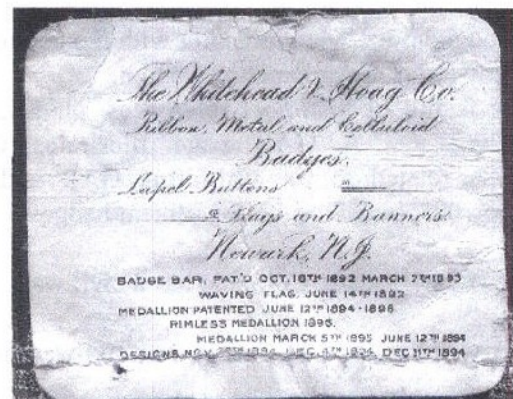 The Whitehead & Hoag Co.
Ribbon, Metal and Celluloid
Badges.
Lapel Buttons
Flags and Banners
Newark, N.J.
BADGE BAR, PAT'D OCT. 18TH 1892 MARCH 7TH 1893
WAVING FLAG, JUNE 14TH 1892
MEDALLION PATENTED JUNE 12TH 1894-1896
RIMLESS MEDALLION 1896.
MEDALLION MARCH 5TH 1895 JUNE 12TH 1894
DESIGNS NOV. 1894, DEC. 4TH 1894, DEC 11TH 1894